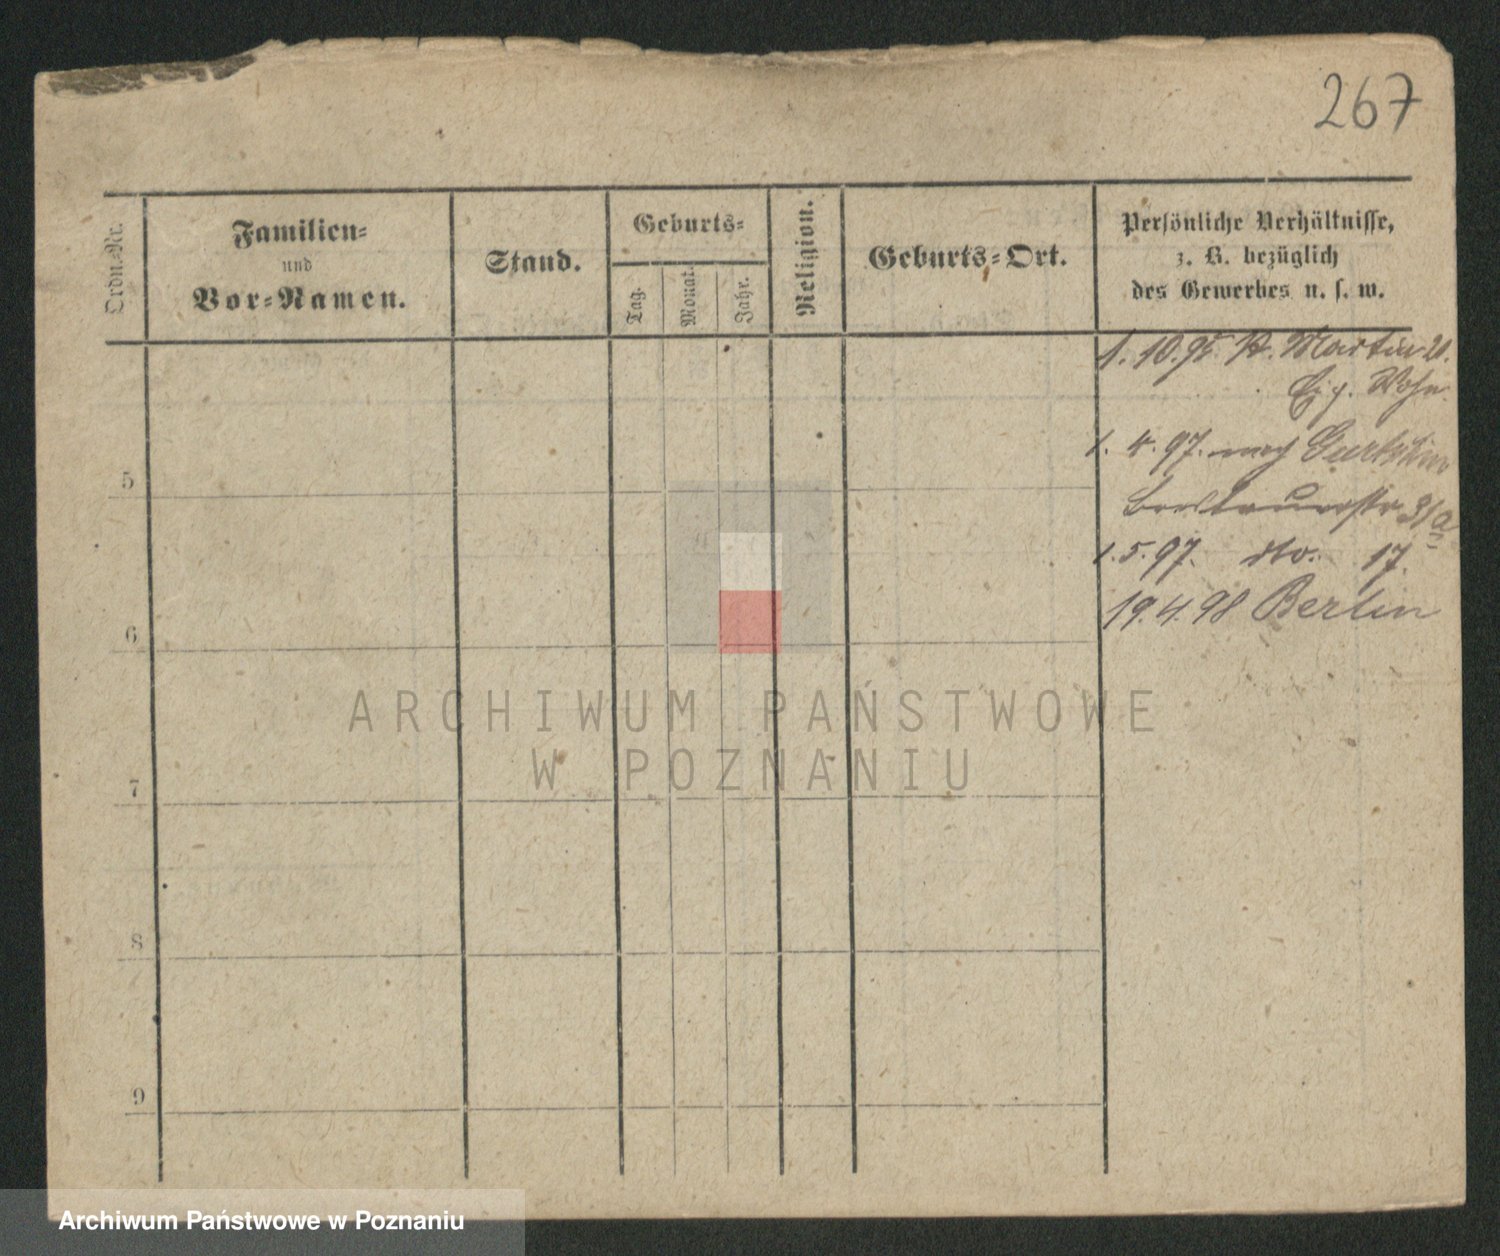 267
Ordn.-Nr.
Familien-
und
Vor-Namen.
Stand.
Geburts-
Tag.
Monat.
Jahr.
Religion.
Geburts-Ort.
Persönliche Verhältnisse,
z. B. bezüglich
des Gewerbes u. s. w.
1. 10. 95. St. Martin 21.
Eig. Wohn.
1. 4. 97. nach
Breslauerstr 31a
1. 5. 97. dto. 17.
19. 4. 98 Berlin
5
6
7
8
9
ARCHIWUM PAŃSTWOWE
W POZNANIU
Archiwum Państwowe w Poznaniu